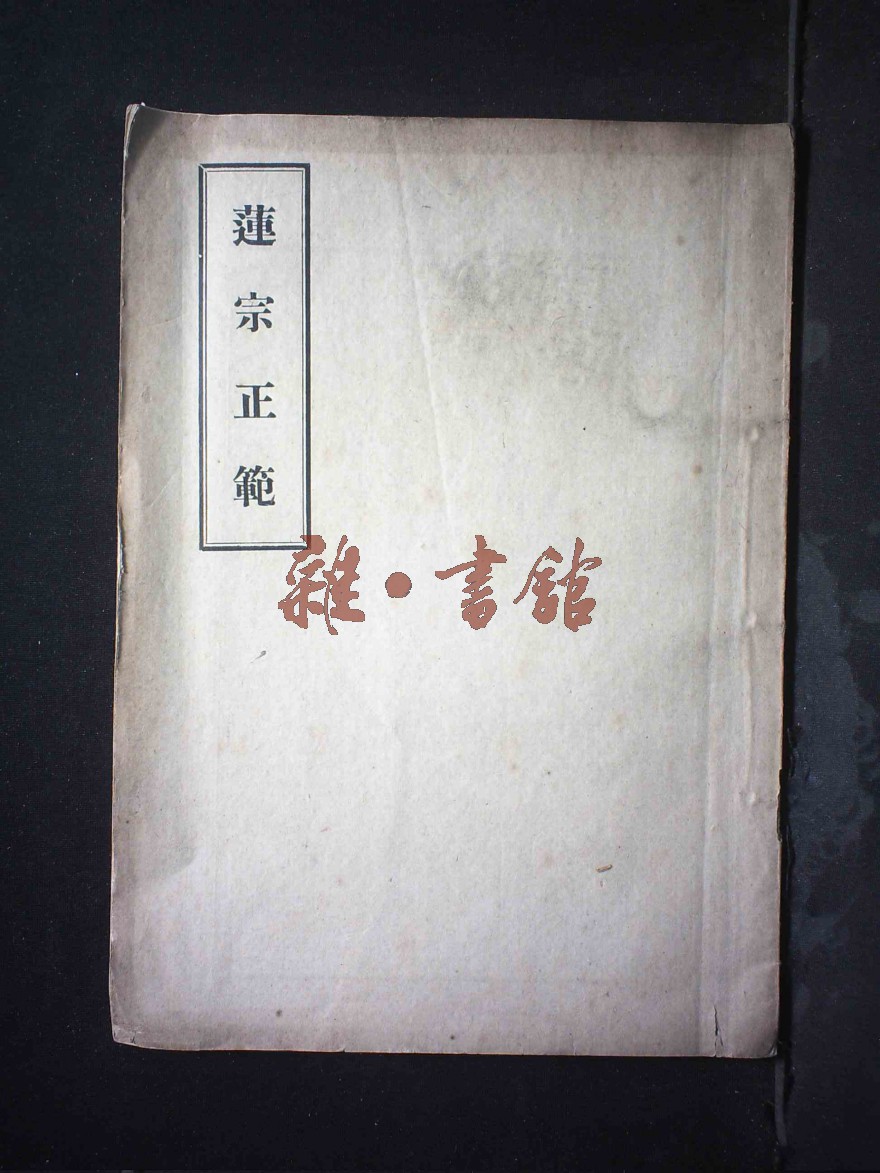 蓮宗正範
雜·書館